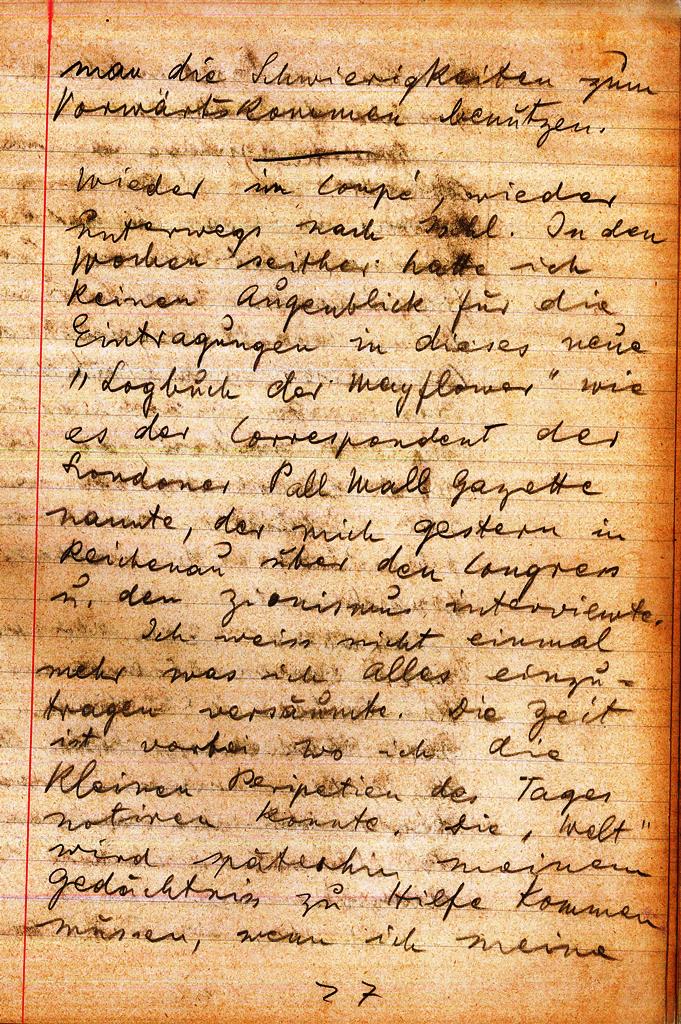 man die Schwierigkeiten zum
Vorwärtskommen benützen.
Wieder im Coupé, wieder
unterwegs nach Ischl. In den
Wochen seither hatte ich
keinen Augenblick für die
Eintragungen in dieses neue
"Logbuch der Mayflower" wie
es der Correspondent der
Londoner Pall Mall Gazette
nannte, der mich gestern in
Reichenau über den Congress
u. den Zionismus interviewte.
Ich weiss nicht einmal
mehr was ich Alles einzu-
tragen versäumte. Die Zeit
ist vorbei wo ich die
kleinen Peripetien des Tages
notiren konnte. Die „Welt"
wird späterhin meinem
Gedächtniss zu Hilfe kommen
müssen, wenn ich meine
27